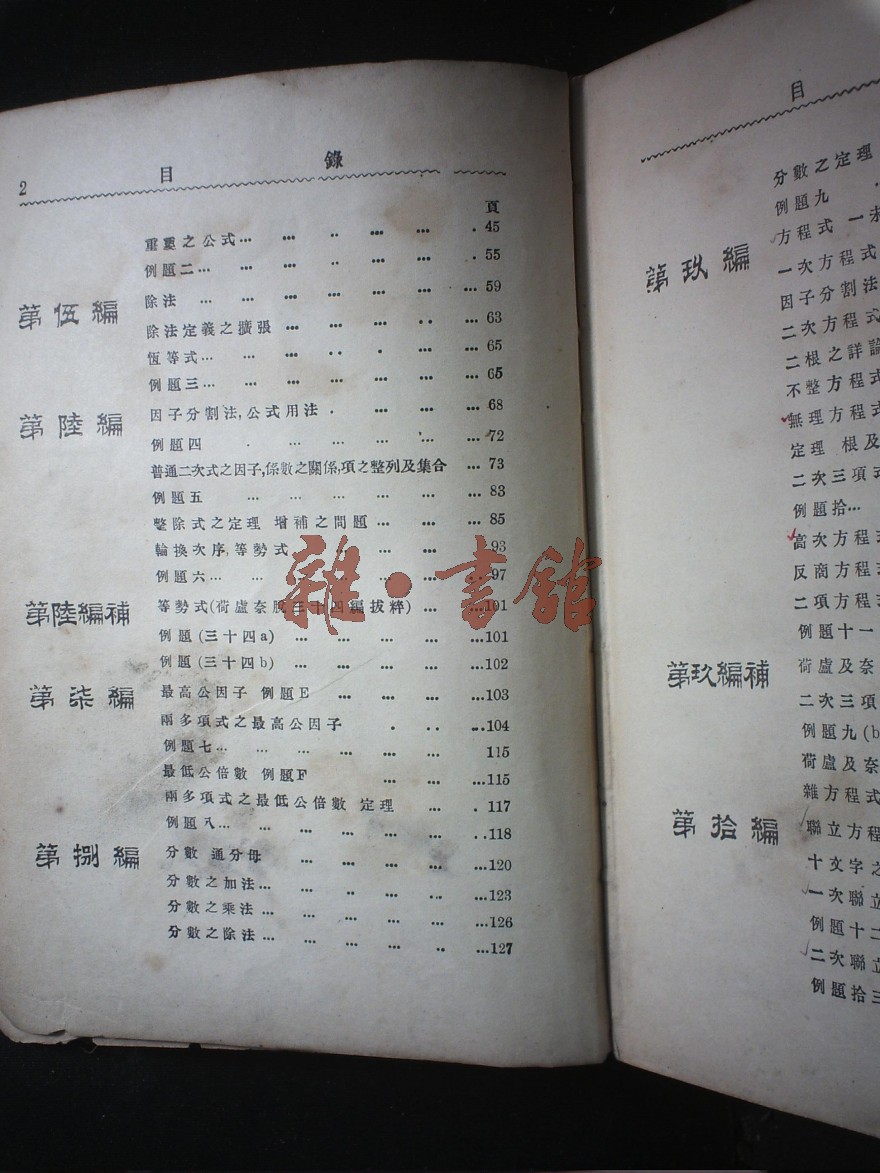 2 目 錄
頁
重要之公式… … ‥ … … . 45
例題二… … … … … … . 55
第伍編 除法 … … … … … … … 59
除法定義之擴張 … … ‥ … … 63
恆等式… … … ‥ . … … 65
例題三… … … … … … … 65
第陸編 因子分割法,公式用法 . … … … 68
例題四 . … … … … … 72
普通二次式之因子,係數之關係,項之整列及集合 … 73
例題五 … … … … … … 83
整除式之定理 增補之問題 … … … 85
輪換次序,等勢式 … … … 93
例題六… … … … … … 97
第陸編補 等勢式(荷盧奈脫三十四編拔粹) … …101
例題(三十四a) … … … … …101
例題(三十四b) … … … … …102
第柒編 最高公因子 例題E … … … …103
兩多項式之最高公因子 . . ‥ …104
例題七… … … … … … 115
最低公倍數 例題F … … …115
兩多項式之最低公倍數 定理 … . … 117
例題八… … … … … … ..118
第捌編 分數 通分母 … … … … …120
分數之加法… … … … … …123
分數之乘法… … … … … …126
分數之除法… … … … ‥ …127
目
分數之定理
例題九 .
第玖編 方程式 一未
一次方程式
因子分割法
二次方程式
二根之詳論
不整方程式
無理方程式
定理 根及
二次三項式
例題拾…
高次方程式
反商方程式
二項方程式
例題十一
第玖編補 荷盧及奈
二次三項
例題九(b
荷盧及奈
雜方程式
第拾編 聯立方程
十文字之
一次聯立
例題十二
二次聯立
例題拾三
雜·書館